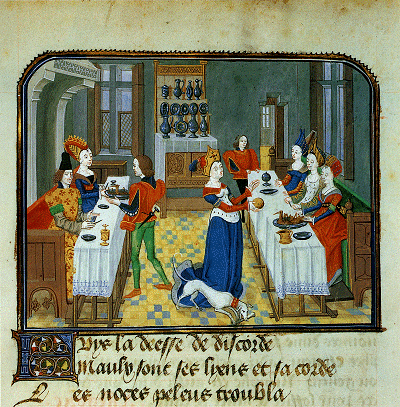 Suys la deesse de discorde
Mauly sont ses lyens et sa corde
Les noces peleus troubla